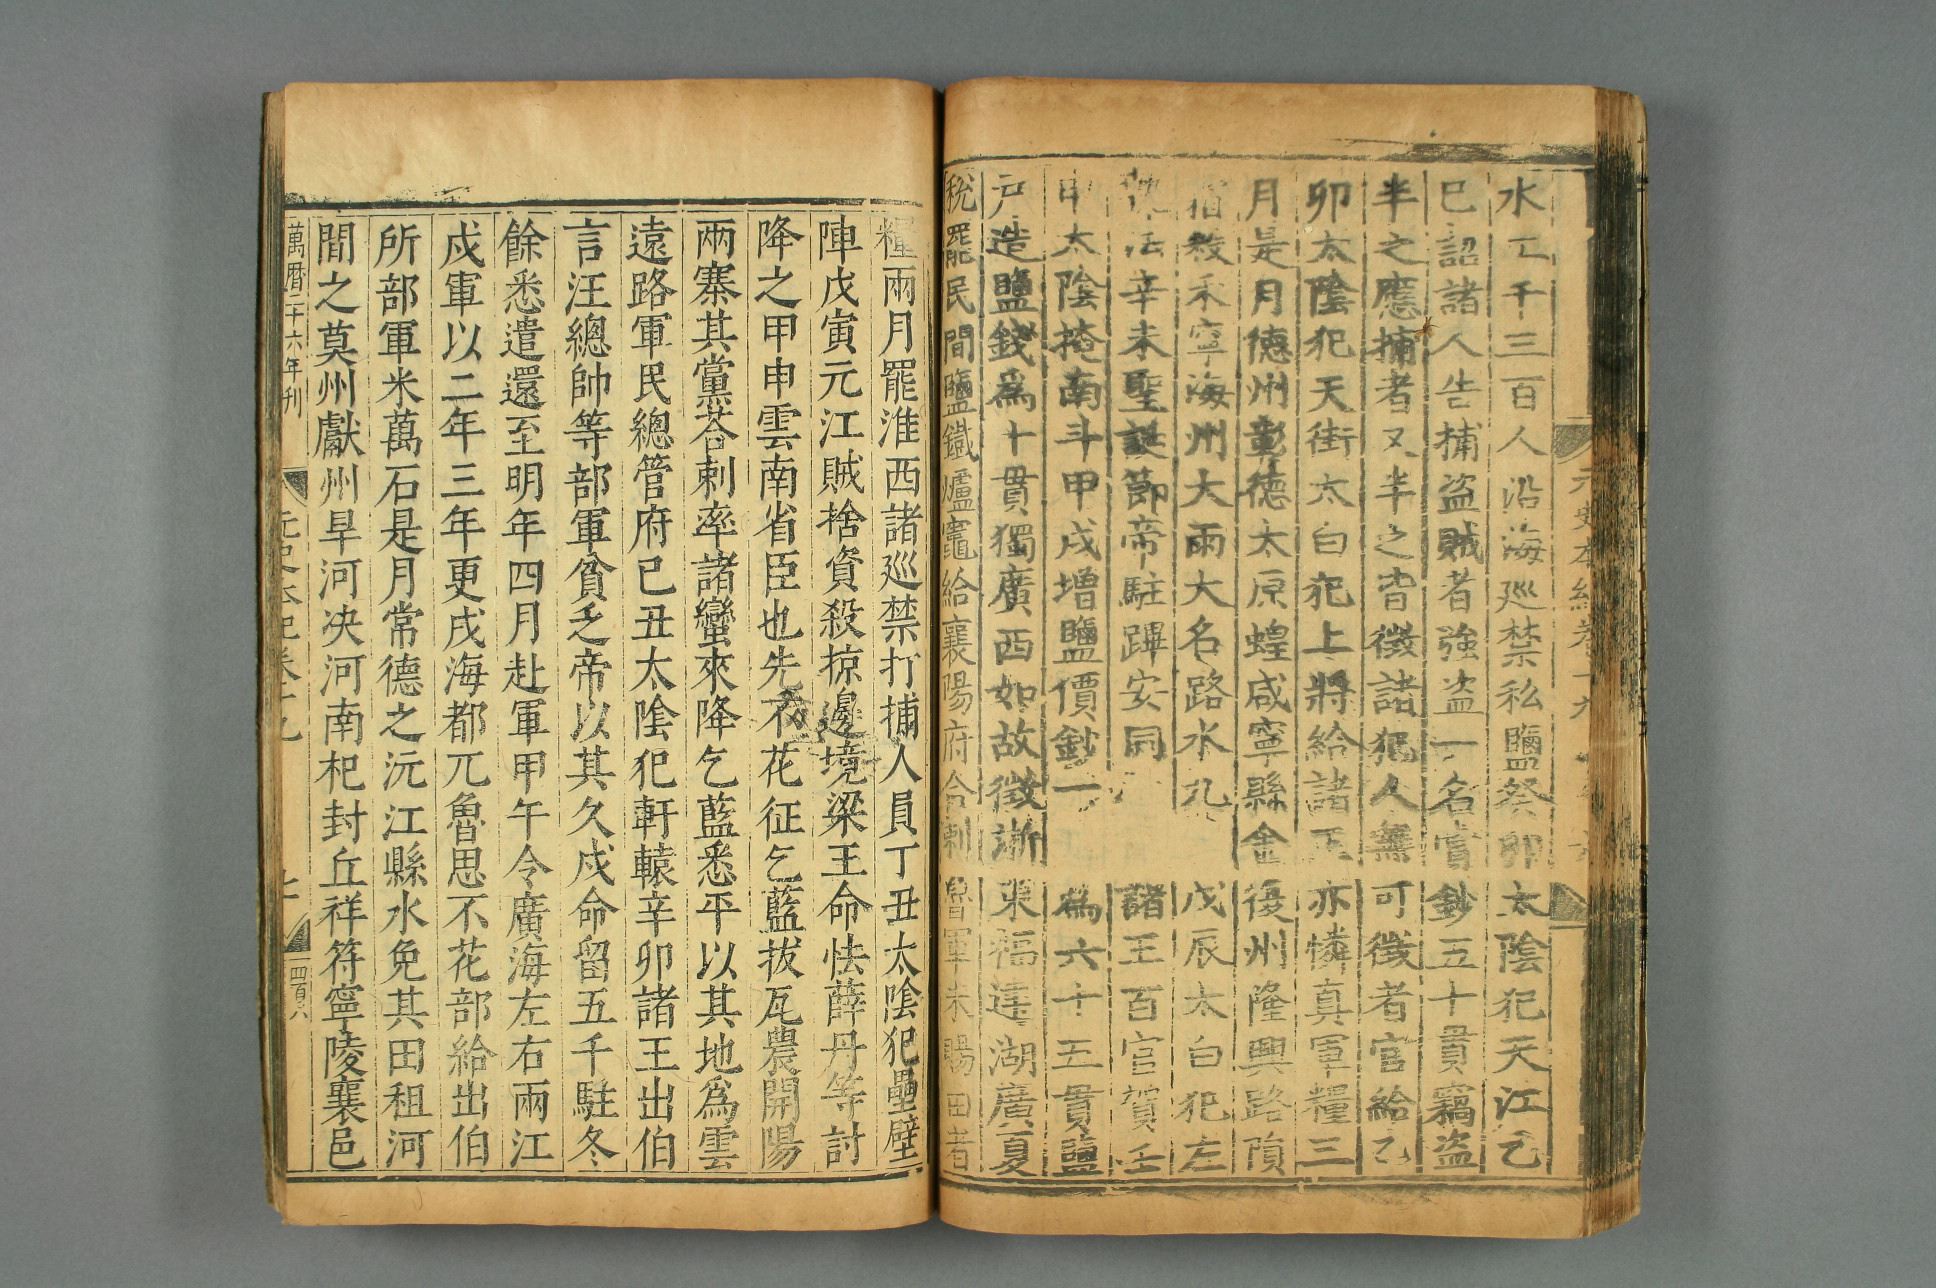 元史本紀卷十九
水工千三百人沿海巡禁私鹽癸卯太陰犯天江乞
巳詔諸人告捕盜賊者強盜一名賞鈔五十貫竊盜
半之應捕者又半之皆徵諸犯人無可徵者官給乙
卯太陰犯天街太白犯上將給諸王亦憐真軍糧三
月是月德州彰德太原蝗咸寧縣金復州隆興路隕
霜殺禾寧海州大雨大名路水九 戊辰太白犯左
執法辛未聖誕節帝駐蹕安同 諸王百官賀壬
申太陰掩南斗甲戌增鹽價鈔一 爲六十五貫鹽
戶造鹽錢爲十貫獨廣西如故徵浙東福建湖廣夏
稅罷民間鹽鐵爐竈給襄陽府合剌魯軍未賜田者
糧兩月罷淮西諸巡禁打捕人員丁丑太陰犯壘壁
陣戊寅元江賊捨資殺掠邊境梁王命怯薛丹等討
降之甲申雲南省臣也先不花征乞藍拔瓦農開陽
兩寨其黨荅剌率諸蠻來降乞藍悉平以其地爲雲
遠路軍民總管府己丑太陰犯軒轅辛卯諸王出伯
言汪總帥等部軍貧乏帝以其久戍命留五千駐冬
餘悉遣還至明年四月赴軍甲午令廣海左右兩江
戍軍以二年三年更戍海都兀魯思不花部給出伯
所部軍米萬石是月常德之沅江縣水免其田租河
間之莫州獻州旱河決河南杞封丘祥符寧陵襄邑
萬曆二十六年刊
元史本紀卷十九
四百六